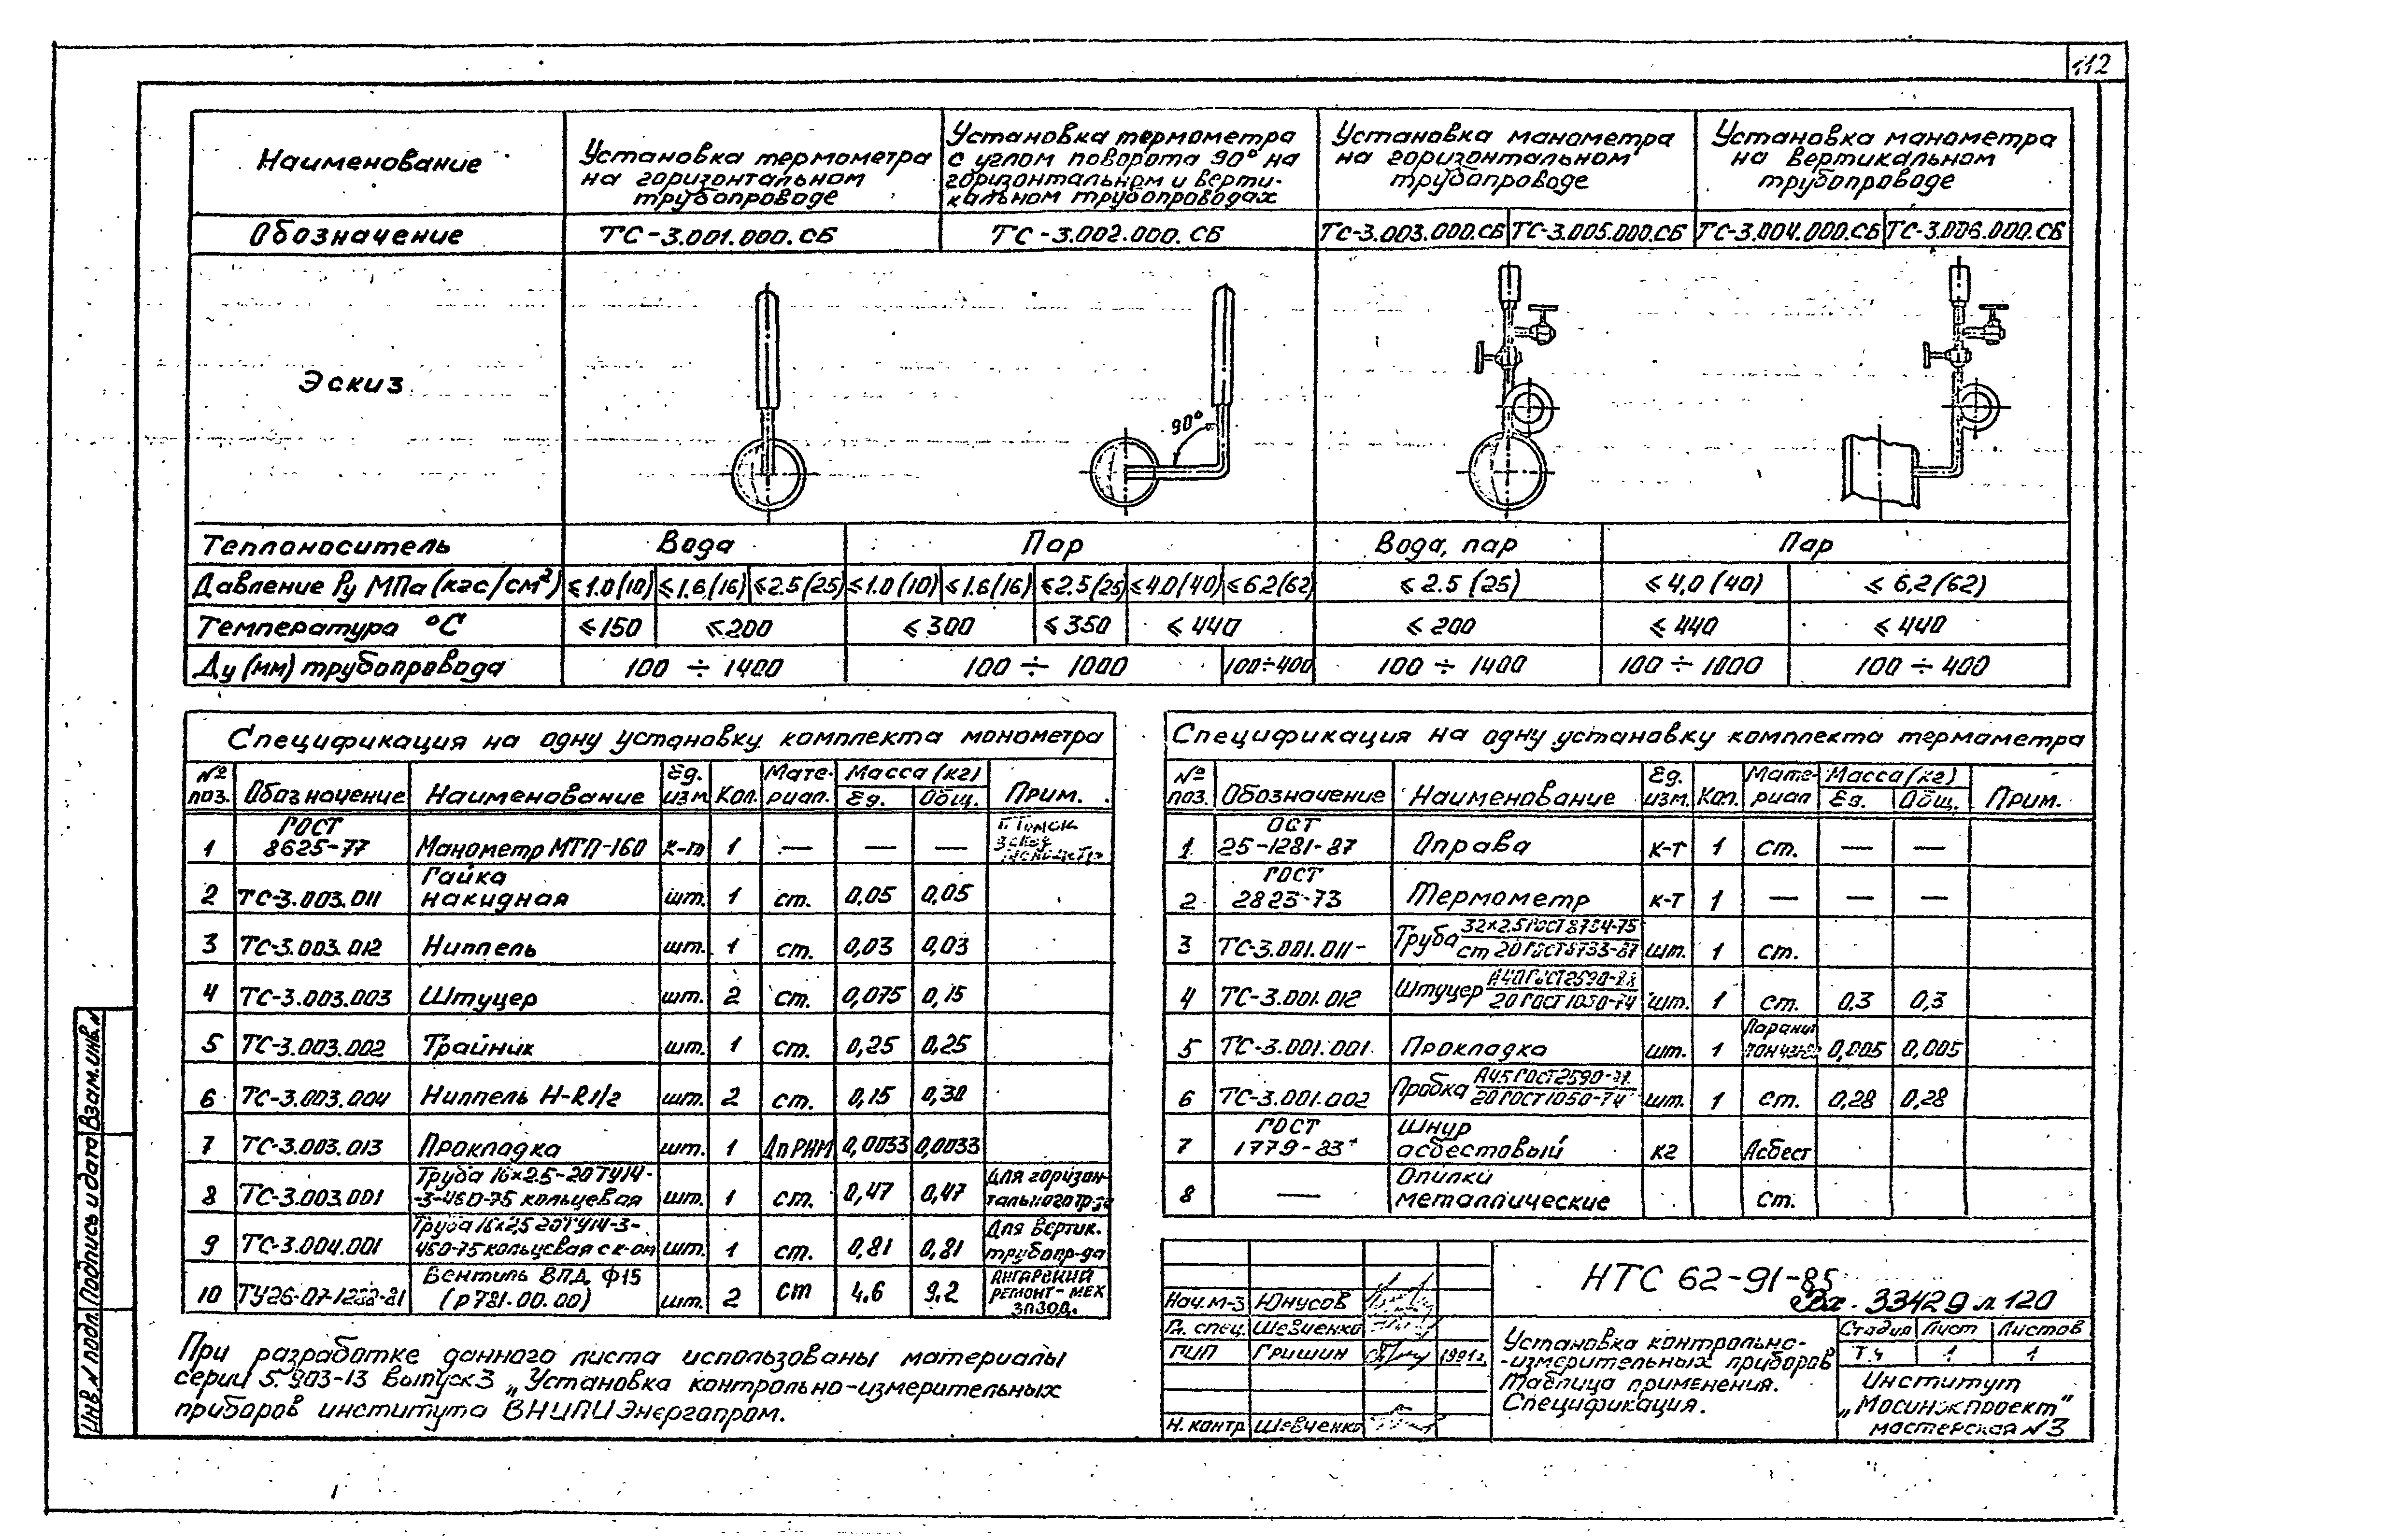 112
Наименование
Установка термометра
на горизонтальном
трубопроводе
Установка термометра
с углом поворота 90° на
горизонтальном и верти-
кальном трубопроводах
Установка манометра
на горизонтальном
трубопроводе
Установка манометра
на вертикальном
трубопроводе
Обозначение ТС-3.001.000.СБ ТС-3.002.000.СБ ТС-3.003.000.СБ ТС-3.005.000.СБ ТС-3.004.000.СБ ТС-3.006.000.СБ
Эскиз
90°
Теплоноситель Вода Пар Вода, пар Пар
Давление Ру МПа (кгс/см²) ≤1.0(10) ≤1.6(16) ≤2.5(25) ≤1.0(10) ≤1.6(16) ≤2.5(25) ≤4.0(40) ≤6.2(62) ≤2.5(25) ≤4,0(40) ≤6,2(62)
Температура °С ≤150 ≤200 ≤300 ≤350 ≤440 ≤200 ≤440 ≤440
Ду (мм) трубопровода 100÷1400 100÷1000 100÷400 100÷1400 100÷1000 100÷400
Спецификация на одну установку комплекта монометра
№ поз. Обозначение Наименование Ед. изм. Кол. Мате-риал. Масса (кг) Ед. Общ. Прим.
1 ГОСТ 8625-77 Манометр МТП-160 к-т 1 — — — г. Томск
2 ТС-3.003.011 Гайка накидная шт. 1 ст. 0,05 0,05
3 ТС-3.003.012 Ниппель шт. 1 ст. 0,03 0,03
4 ТС-3.003.003 Штуцер шт. 2 ст. 0,075 0,15
5 ТС-3.003.002 Тройник шт. 1 ст. 0,25 0,25
6 ТС-3.003.004 Ниппель Н-R1/2 шт. 2 ст. 0,15 0,30
7 ТС-3.003.013 Прокладка шт. 1 0,0033 0,0033
8 ТС-3.003.001 Труба 16×2.5-20 ТУ14-
-3-460-75 кольцевая шт. 1 ст. 0,47 0,47 Для горизон-
тального тр-да
9 ТС-3.004.001 Труба 16×2,5 20ТУ14-3-
460-75 кольцевая с к-ом шт. 1 ст. 0,81 0,81 Для вертик.
трубопр-да
10 Вентиль ВПД Ф15
(р 781.00.00) шт. 2 ст 4.6 9.2 АНГАРСКИЙ
РЕМОНТ-МЕХ
ЗАВОД.
При разработке данного листа использованы материалы
серии 5.903-13 выпуск 3 „Установка контрольно-измерительных
приборов института ВНИПИЭнергопром.
Спецификация на одну установку комплекта термометра
№ поз. Обозначение Наименование Ед. изм. Кол. Мате-риал Масса (кг) Ед. Общ. Прим.
1 ОСТ 25-1281-87 Оправа к-т 1 ст. — —
2 ГОСТ 2823-73 Термометр к-т 1 — — —
3 ТС-3.001.011- Труба 32×2.5 ГОСТ 8734-75
ст 20 ГОСТ 8733-87 шт. 1 ст.
4 ТС-3.001.012 Штуцер
20 ГОСТ 1050-74 шт. 1 ст. 0,3 0,3
5 ТС-3.001.001 Прокладка шт. 1 Паранит 0,005 0,005
6 ТС-3.001.002 Пробка А45 ГОСТ 2590-71
20 ГОСТ 1050-74 шт. 1 ст. 0,28 0,28
7 ГОСТ 1779-83* Шнур асбестовый кг Асбест
8 — Опилки металлические Ст.
НТС 62-91-85
Вх. 33429 л 120
Нач.м-3 Юнусов
Гл. спец. Шевченко
ГИП Гришин 1991г.
Н. контр Шевченко
Установка контрольно-
-измерительных приборов
Таблица применения.
Спецификация.
Стадия Лист Листов
Т.ч 1 1
Институт
„Мосинжпроект"
мастерская №3
Инв. № подл. Подпись и дата Взам. инв. №